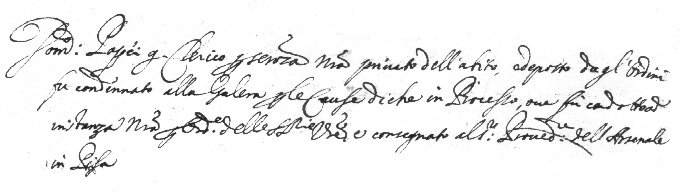 Dom:co Pappei g. Clerico p. senza Nra privato dell'abito, e deposto dagl'Ordini
fu condennato alla Galera p le Cause di che in Processo, ove fu condotto ad
instanza Nra p Ord.e delle SS.rie VV. e consegnato al S.r Proved.re dell'Arsenale
in Pisa